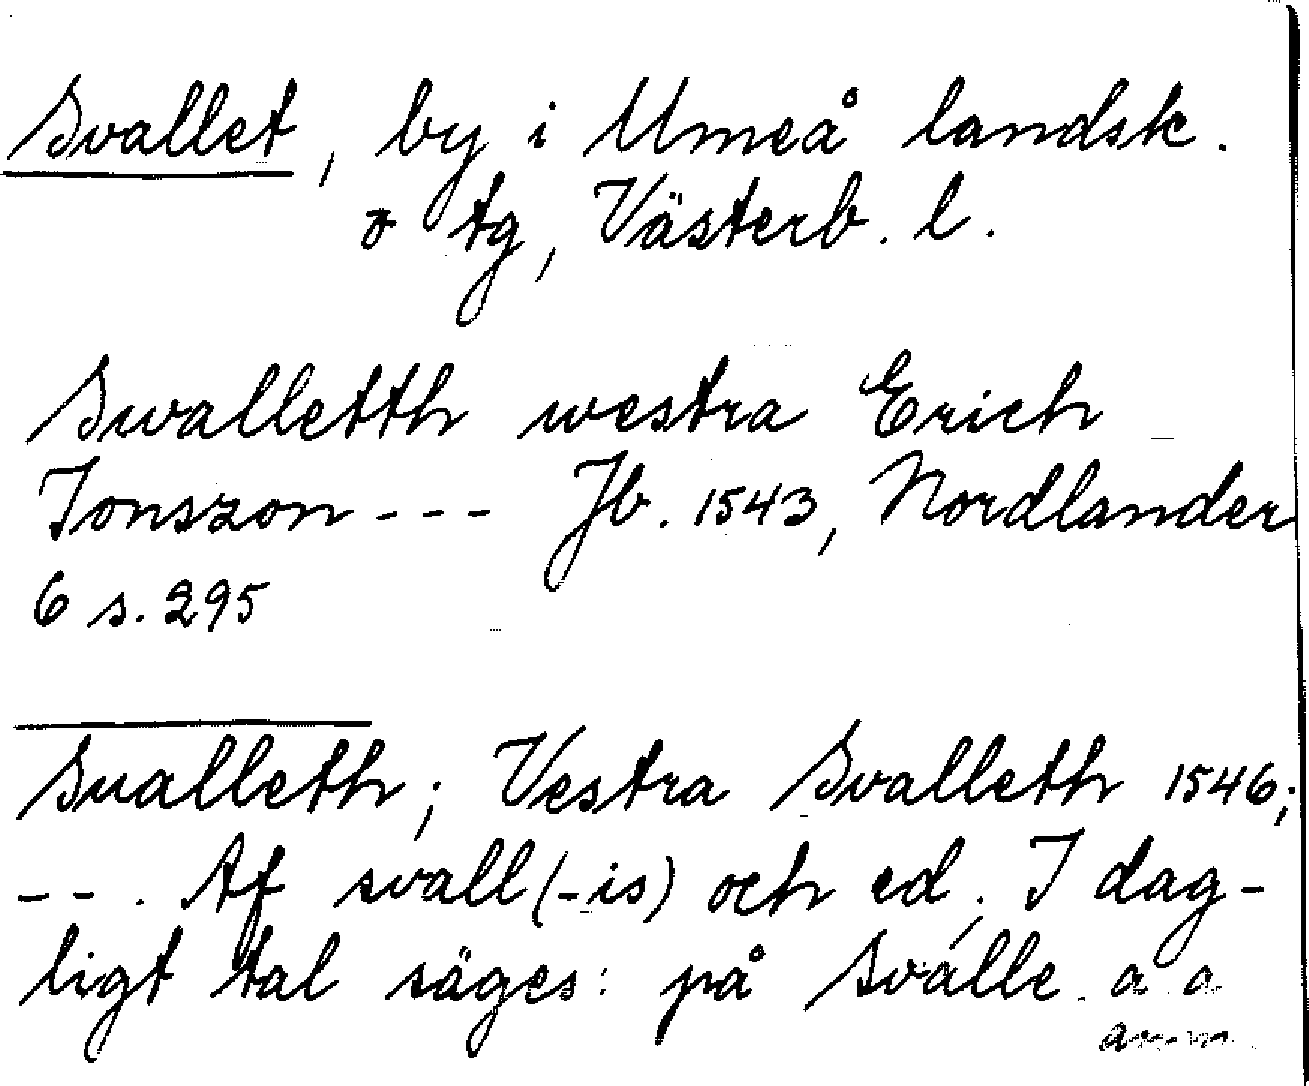 Svallet, by i Umeå landsk.
o tg, Västerb. l.
Swalletth westra Erich
Jonszon --- Jb. 1543, Nordlander
6 s. 295
Sualleth; Vestra Svalleth 1546;
--. Af svall(-is) och ed. I dag-
ligt tal säges: på Sválle. a a
anm.